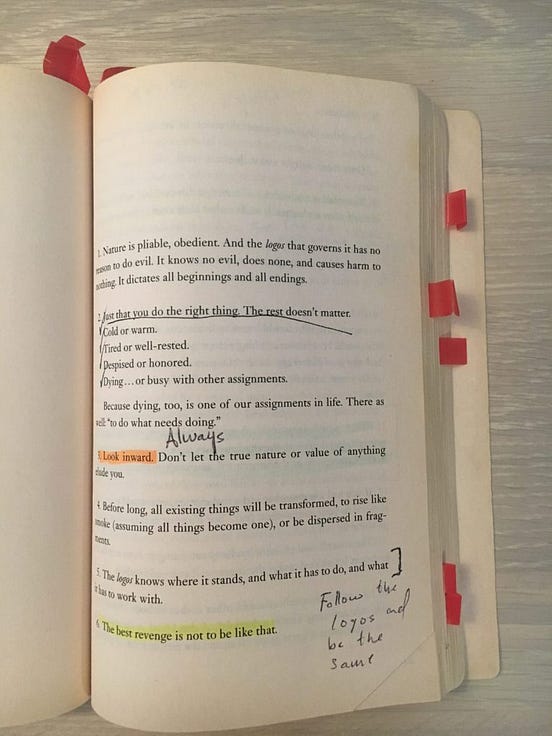 1. Nature is pliable, obedient. And the logos that governs it has no
reason to do evil. It knows no evil, does none, and causes harm to
nothing. It dictates all beginnings and all endings.
2. Just that you do the right thing. The rest doesn't matter.
Cold or warm.
Tired or well-rested.
Despised or honored.
Dying...or busy with other assignments.
Because dying, too, is one of our assignments in life. There as
well: "to do what needs doing."
Always
3. Look inward. Don't let the true nature or value of anything
elude you.
4. Before long, all existing things will be transformed, to rise like
smoke (assuming all things become one), or be dispersed in frag-
ments.
5. The logos knows where it stands, and what it has to do, and what
it has to work with.
6. The best revenge is not to be like that.
Follow the
logos and
be the
same